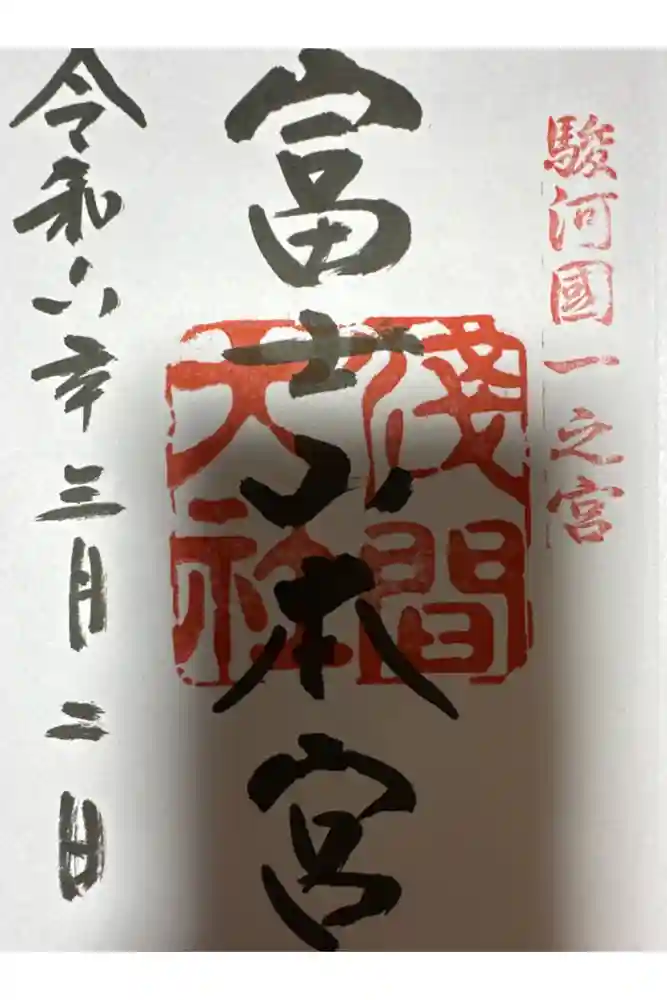 駿河國一之宮
富士山本宮
淺間大社
令和六年三月二日